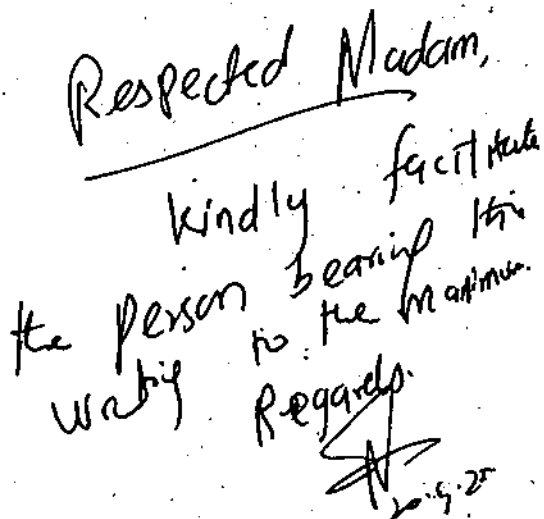 Respected Madam,
kindly facilitate
the Person bearing this
writing to the maximum.
Regards.